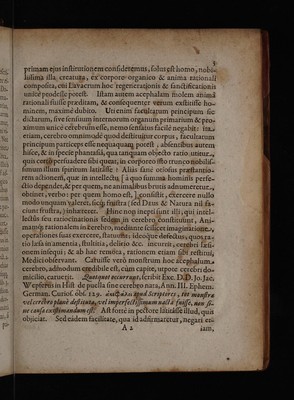 3
primam ejus institutionem consideremus, solus est homo, nobi-
lissima illa creatura, ex corpore organico & anima rationali
composita, cui Lavacrum hoc regenerationis & sanctificationis
unicè prodesse potest. Istam autem acephalam molem animâ
rationali fuisse præditam, & consequenter verum exstitisse ho-
minem, maximè dubito. Uti enim facultatum principum se-
dictarum, sive sensuum internorum organum primarium & pro-
ximum unicè cerebrum esse, nemo sensatus facilè negabit: ita
etiam, cerebro omnimodè quod destituitur corpus, facultatum
principum particeps esse nequaquam potest; absentibus autem
hisce, & in specie phantasiâ, quâ tanquam objecto ratio utitur,
quis confisi persuadere sibi queat, in corporeo isto trunco nobilis-
simum illum spiritum latitâsse? Aliàs sanè otiosus præstantio-
rem actionem, quæ in intellectu, (à quo summa hominis perfe-
ctio dependet, & per quem, ne animalibus brutis adnumeretur,
obtinet, verbo: per quem homo est,) consistit, exercere nullo
modo unquam valeret, sicque frustrà (sed Deus & Natura nil fa-
ciunt frustrà,) inhæreret. Hinc non inepti sunt illi, qui intel-
lectûs seu ratiocinationis sedem in cerebro constituunt, Ani-
mamq; rationalem in cerebro, mediante scilicet imaginatione,
operationes suas exercere, statuunt; ideoque defectus, quos ra-
tio læsa in amentia, stultitia, delirio &c. incurrit, cerebri læsi-
onem insequi; & ab hac remotâ, rationem etiam sibi restitui,
Medici observant. Catulis verò monstrum hoc acephalum
cerebro, admodum credibile est, cum capite, utpote cerebri do-
micilio, caruerit. Quotquot occurrunt, scribit Exc. D.D. Jo. Jac.
Wepferus in Hist. de puella sine cerebro nata, Ann. III. Ephem.
German. Curios. obs. 129. ἀκέφαλα apud Scriptores, ita monstra
vel cerebro planè destituta, vel imperfectissimum nacta fuisse, non si-
ne causa existimandum est. Ast fortè in pectore latitâsse illud, quis
objiciat. Sed eadem facilitate, quâ id adfirmaretur, negari eti-
A 2
iam,